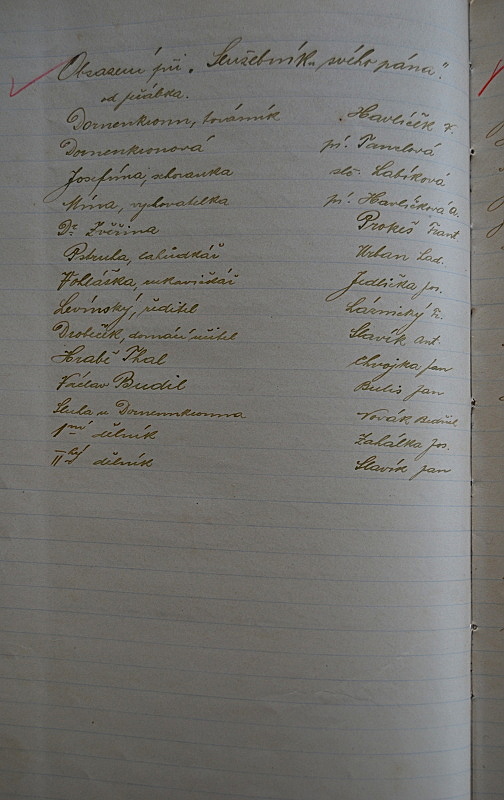 Obsazení při „Služebník svého pána".
od Jeřábka.
Dornenkronn, továrník Havlíček F.
Dornenkronová pí. Tanclová
Josefína, schovanka slč. Labíková
Mína, vychovatelka pí. Havlíčková A.
Dr. Zvěřina Prokeš Frant
Pstruha, lahůdkář Urban Lad.
Voliáška, rukavičkář Jedlička Jos.
Levínský, ředitel Láznický Fr.
Drobíček, domácí učitel Slavík Ant.
Hrabě Thal Chvojka Jan
Václav Budil Bulis Jan
Sluha u Dornenkronna Novák
Ivní dělník Zahálka Jos.
IIhý dělník Slavík Jan